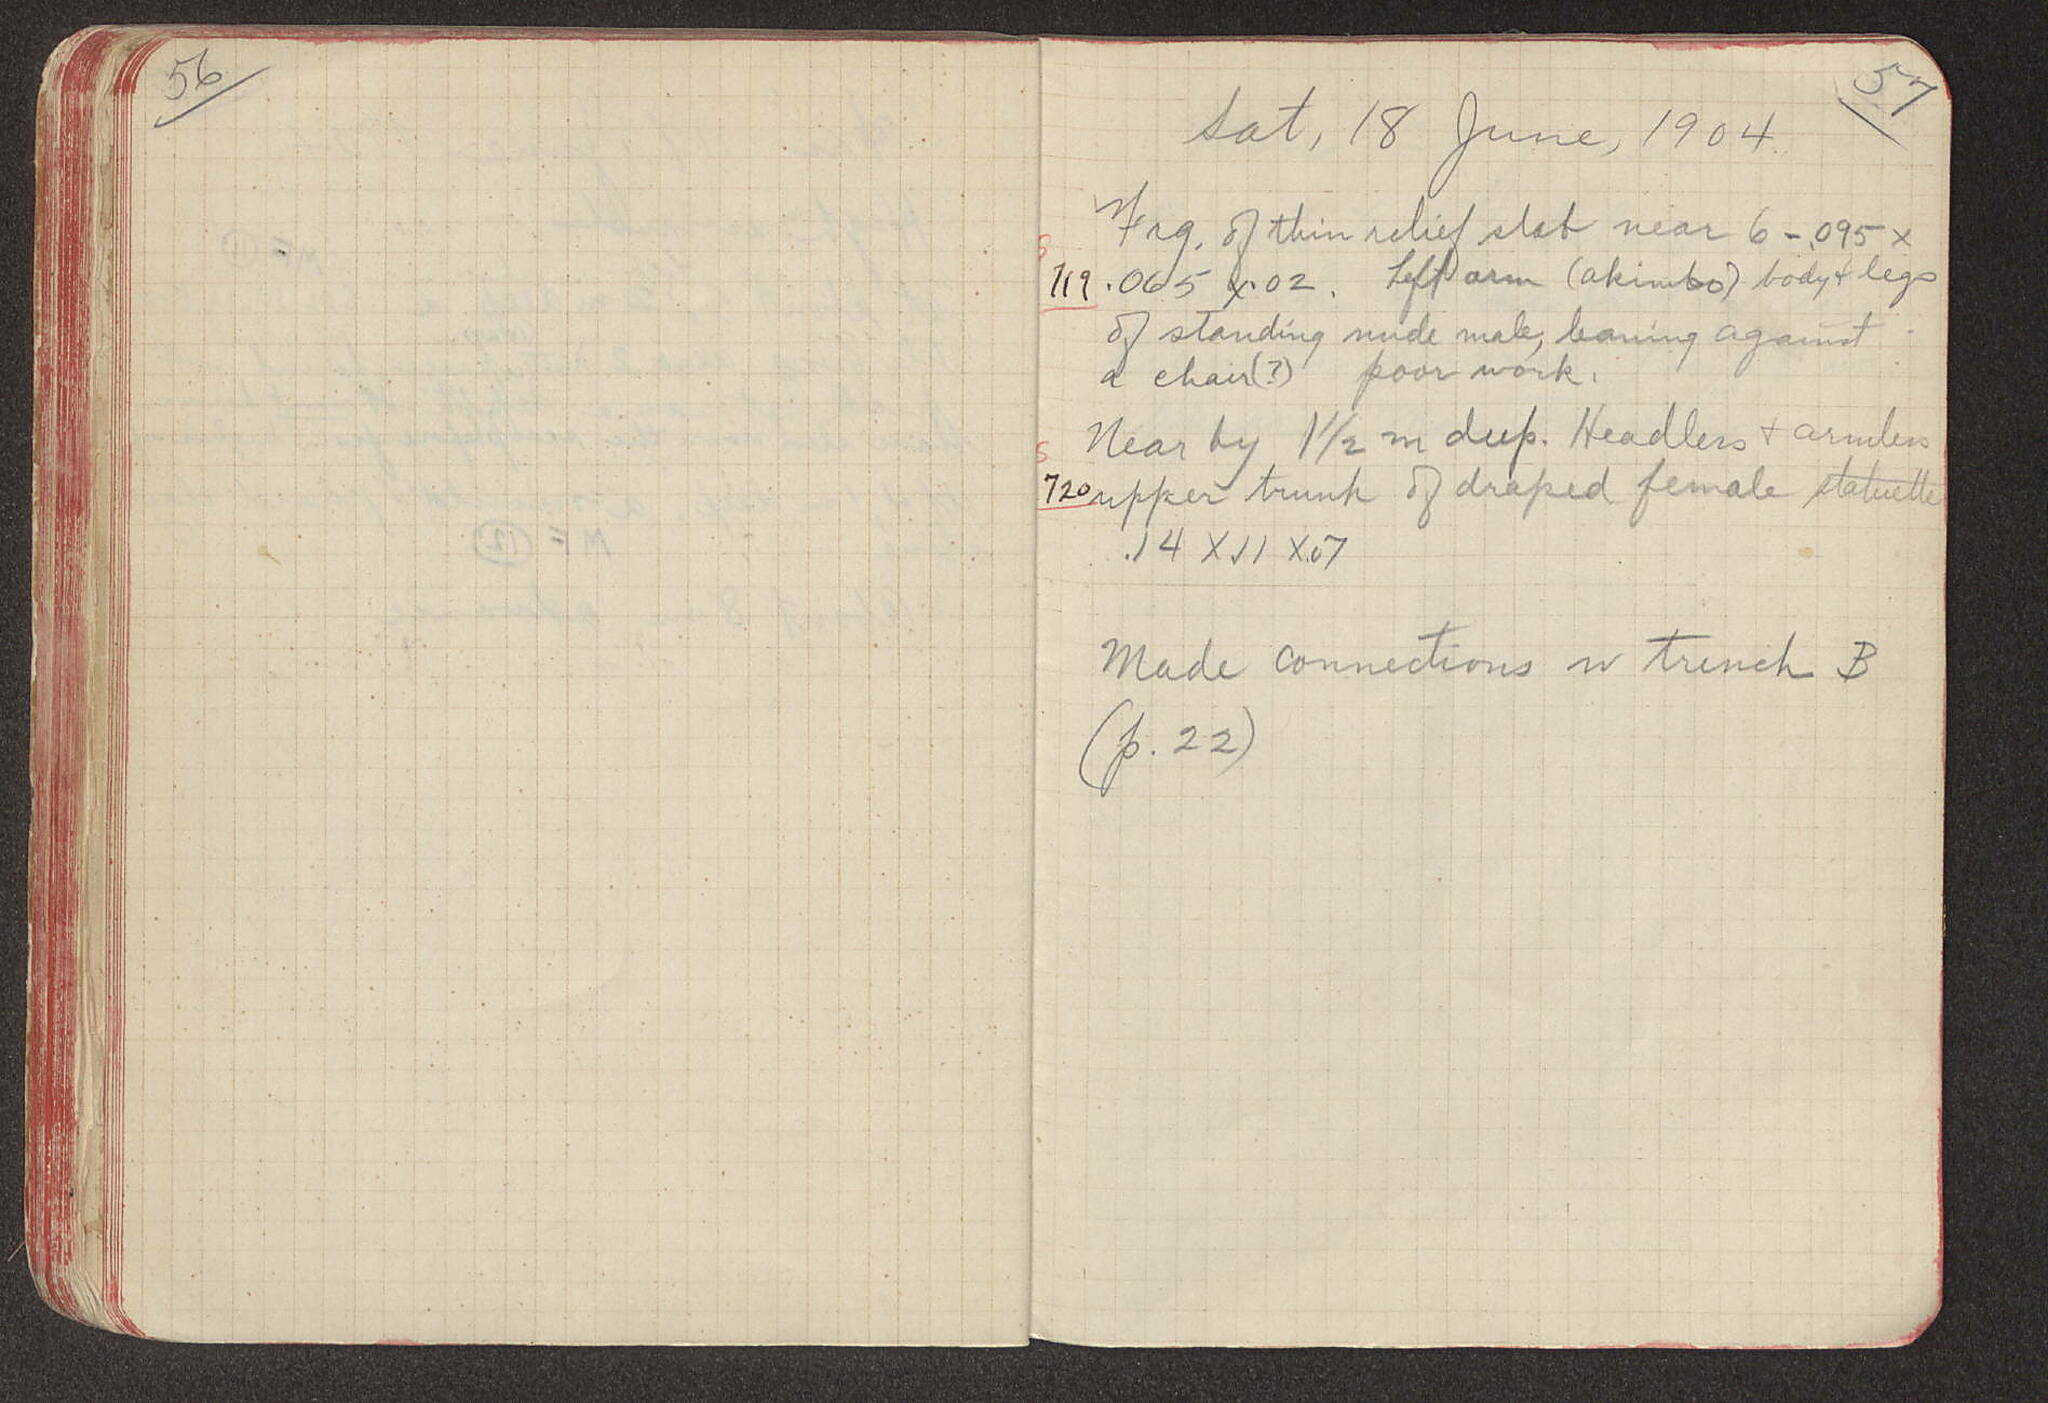 56
57
Sat, 18 June, 1904
Frg. of thin relief slab near 6 - .095 x
S
719 .065 x .02. Left arm (akimbo) body & legs
of standing nude male, leaning against
a chair(?) poor work.
Near by 1 1/2 m deep. Headless & armless
S
720 upper trunk of draped female statuette
.14 X .11 X .07
Made connections w trench B
(p. 22)